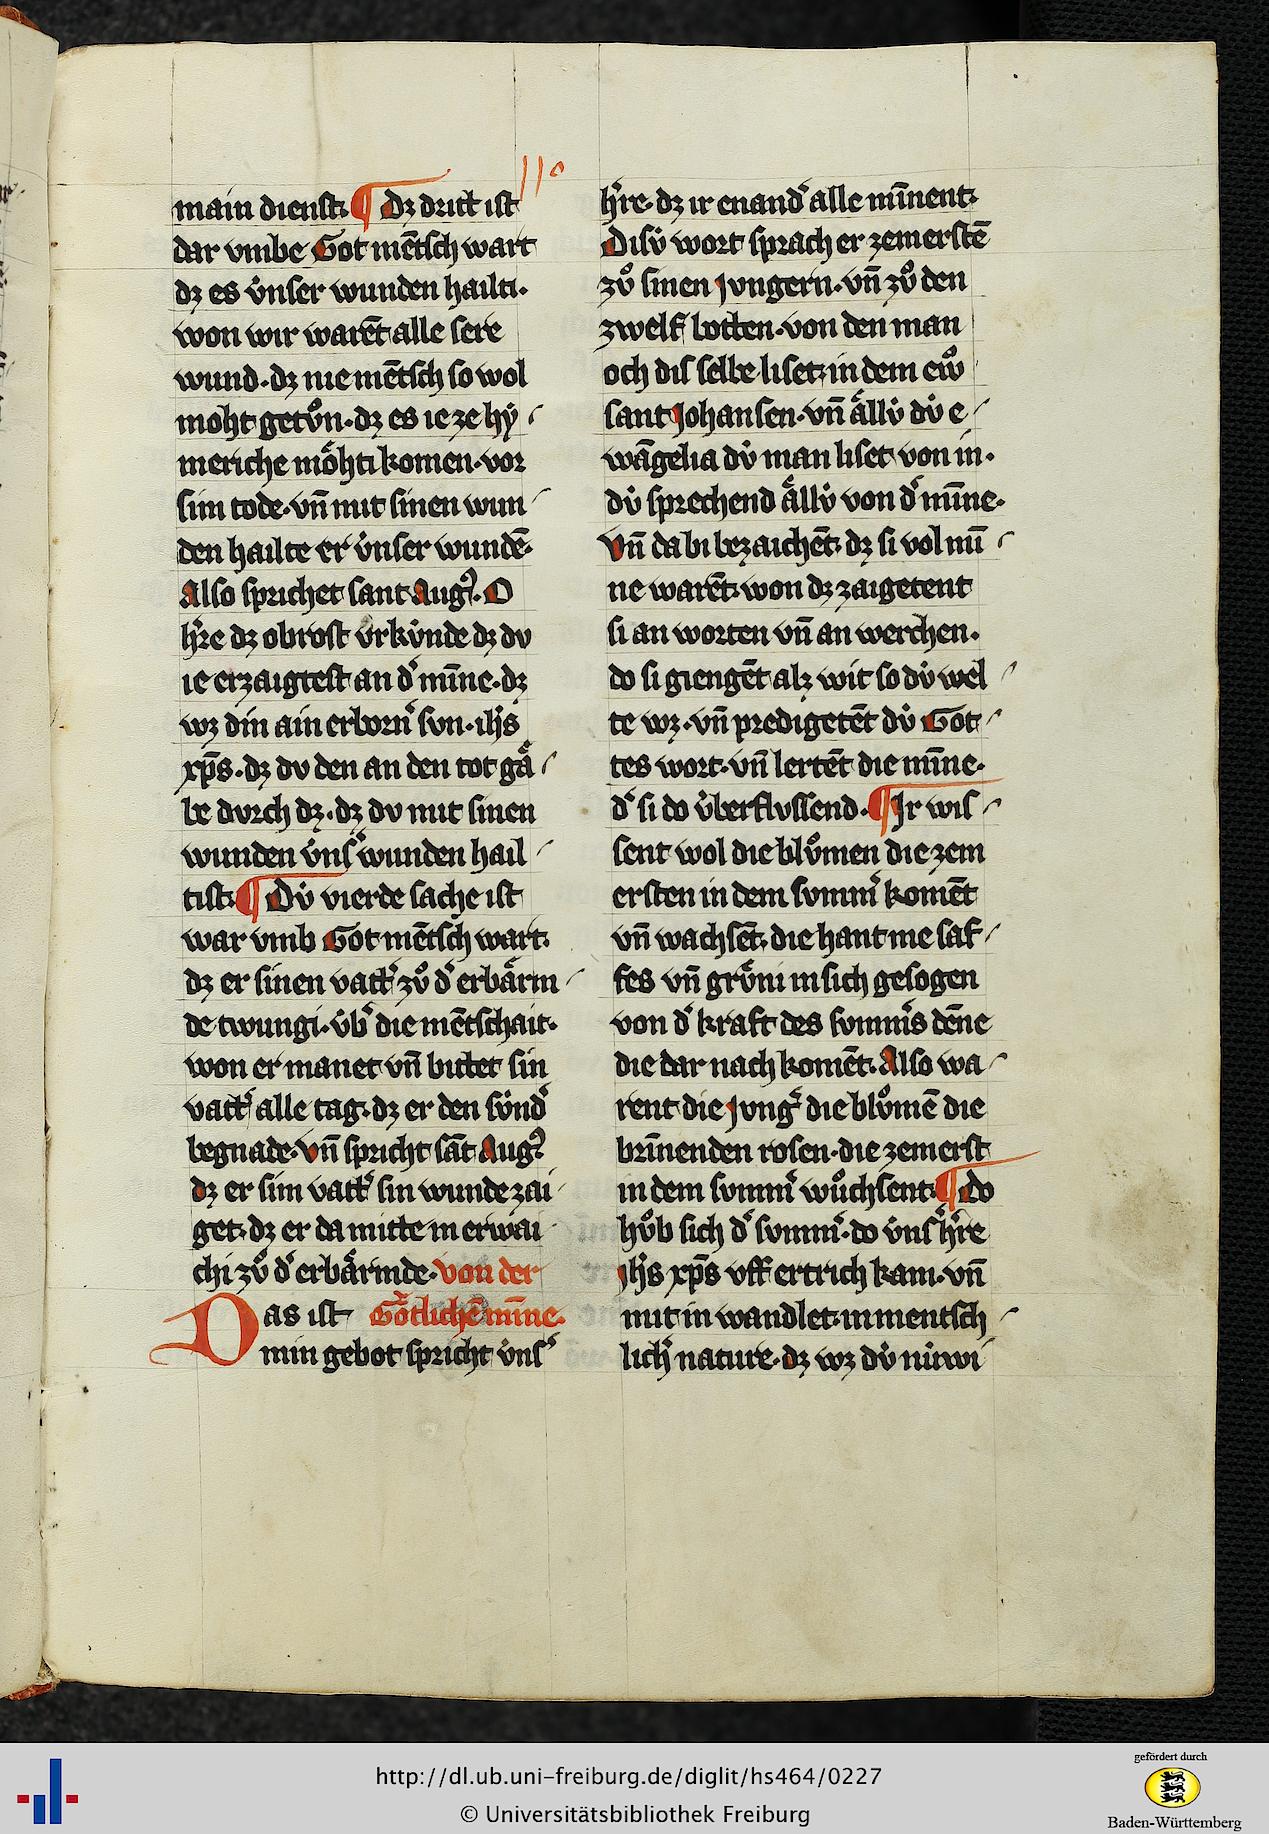 110
main dienst. ¶ Dz dritt ist
dar vmbe Got mētsch wart
dz es v̇nser wunden hailti.
won wir warēt alle sere
wund. dz nie mētsch so wol
moht getůn. dz es ie ze hẏ
meriche mo̊hti komen. vor
sim tode. vn̄ mit sinen wun
den hailte er v̇nser wundē.
Also sprichet sant Aug᾽. O
h᾽re dz obrost vrkv̇nde dz dv
ie erzaigtest an d᾽ mīne. dz
wz din ain erborn᾽ svn. ih̄s
xp̄s. dz dv den an den tot gǎ
be dvrch dz. dz dv mit sinen
wunden v̇ns᾽ wunden hail
tist. ¶ Dv̇ vierde sache ist
war vmb Got mētsch wart.
dz er sinen vatt᾽ zů d᾽ erbǎrm
de twungi. v̇b᾽ die mētschait.
won er manet vn̄ bittet sin
vatt᾽ alle tag. dz er den sv̇nd᾽
begnade. vn̄ spricht sāt Aug᾽
dz er sim vatt᾽ sin wunde zai
get. dz er da mitte in erwai
chi zů d᾽ erbǎrmde. von der
Das ist Go̊tlichē mīne.
min gebot spricht v̇ns᾽
h᾽re. dz ir enand᾽ alle mīnent.
Disv̇ wort sprach er zemerstē
zů sinen jvngern. vn̄ zů den
zwelf botten. von den man
och dis selbe liset, in dem eẘ
sant Johansen. vn̄ ǎllv̇ dv̇ e
wāgelia dv̇ man liset von in.
dv̇ sprechend ǎllv̇ von d᾽ mīne.
vn̄ da bi bezaichēt. dz si vol mī
ne warēt. won dz zaigetent
si an worten vn̄ an werchen.
do si giengēt alz wit so dv̇ wel
te wz. vn̄ predigetēt dv̇ Got
tes wort. vn̄ lertēt die mīne.
d᾽ si do v̇berflvssend. ¶ Jr wis
sent wol die blůmen die zem
ersten in dem svmm᾽ komēt
vn̄ wachsēt. die hant me saf
fes vn̄ grv̊ni in sich gesogen
von d᾽ kraft des svmm᾽s dēne
die dar nach komēt. Also wa
rent die jvng᾽ die blůmē die
brīnenden rosen. die zemerst
in dem svmm᾽ wůchsent. ¶ do
hůb sich d᾽ svmm᾽. do v̇ns᾽ h᾽re
jh̄s xp̄s vff ertrich kam. vn̄
mit in wandlet. in mentsch
lich᾽ nature. dz wz dv̇ nirwi
http://dl.ub.uni-freiburg.de/diglit/hs464/0227
© Universitätsbibliothek Freiburg
gefördert durch
Baden-Württemberg